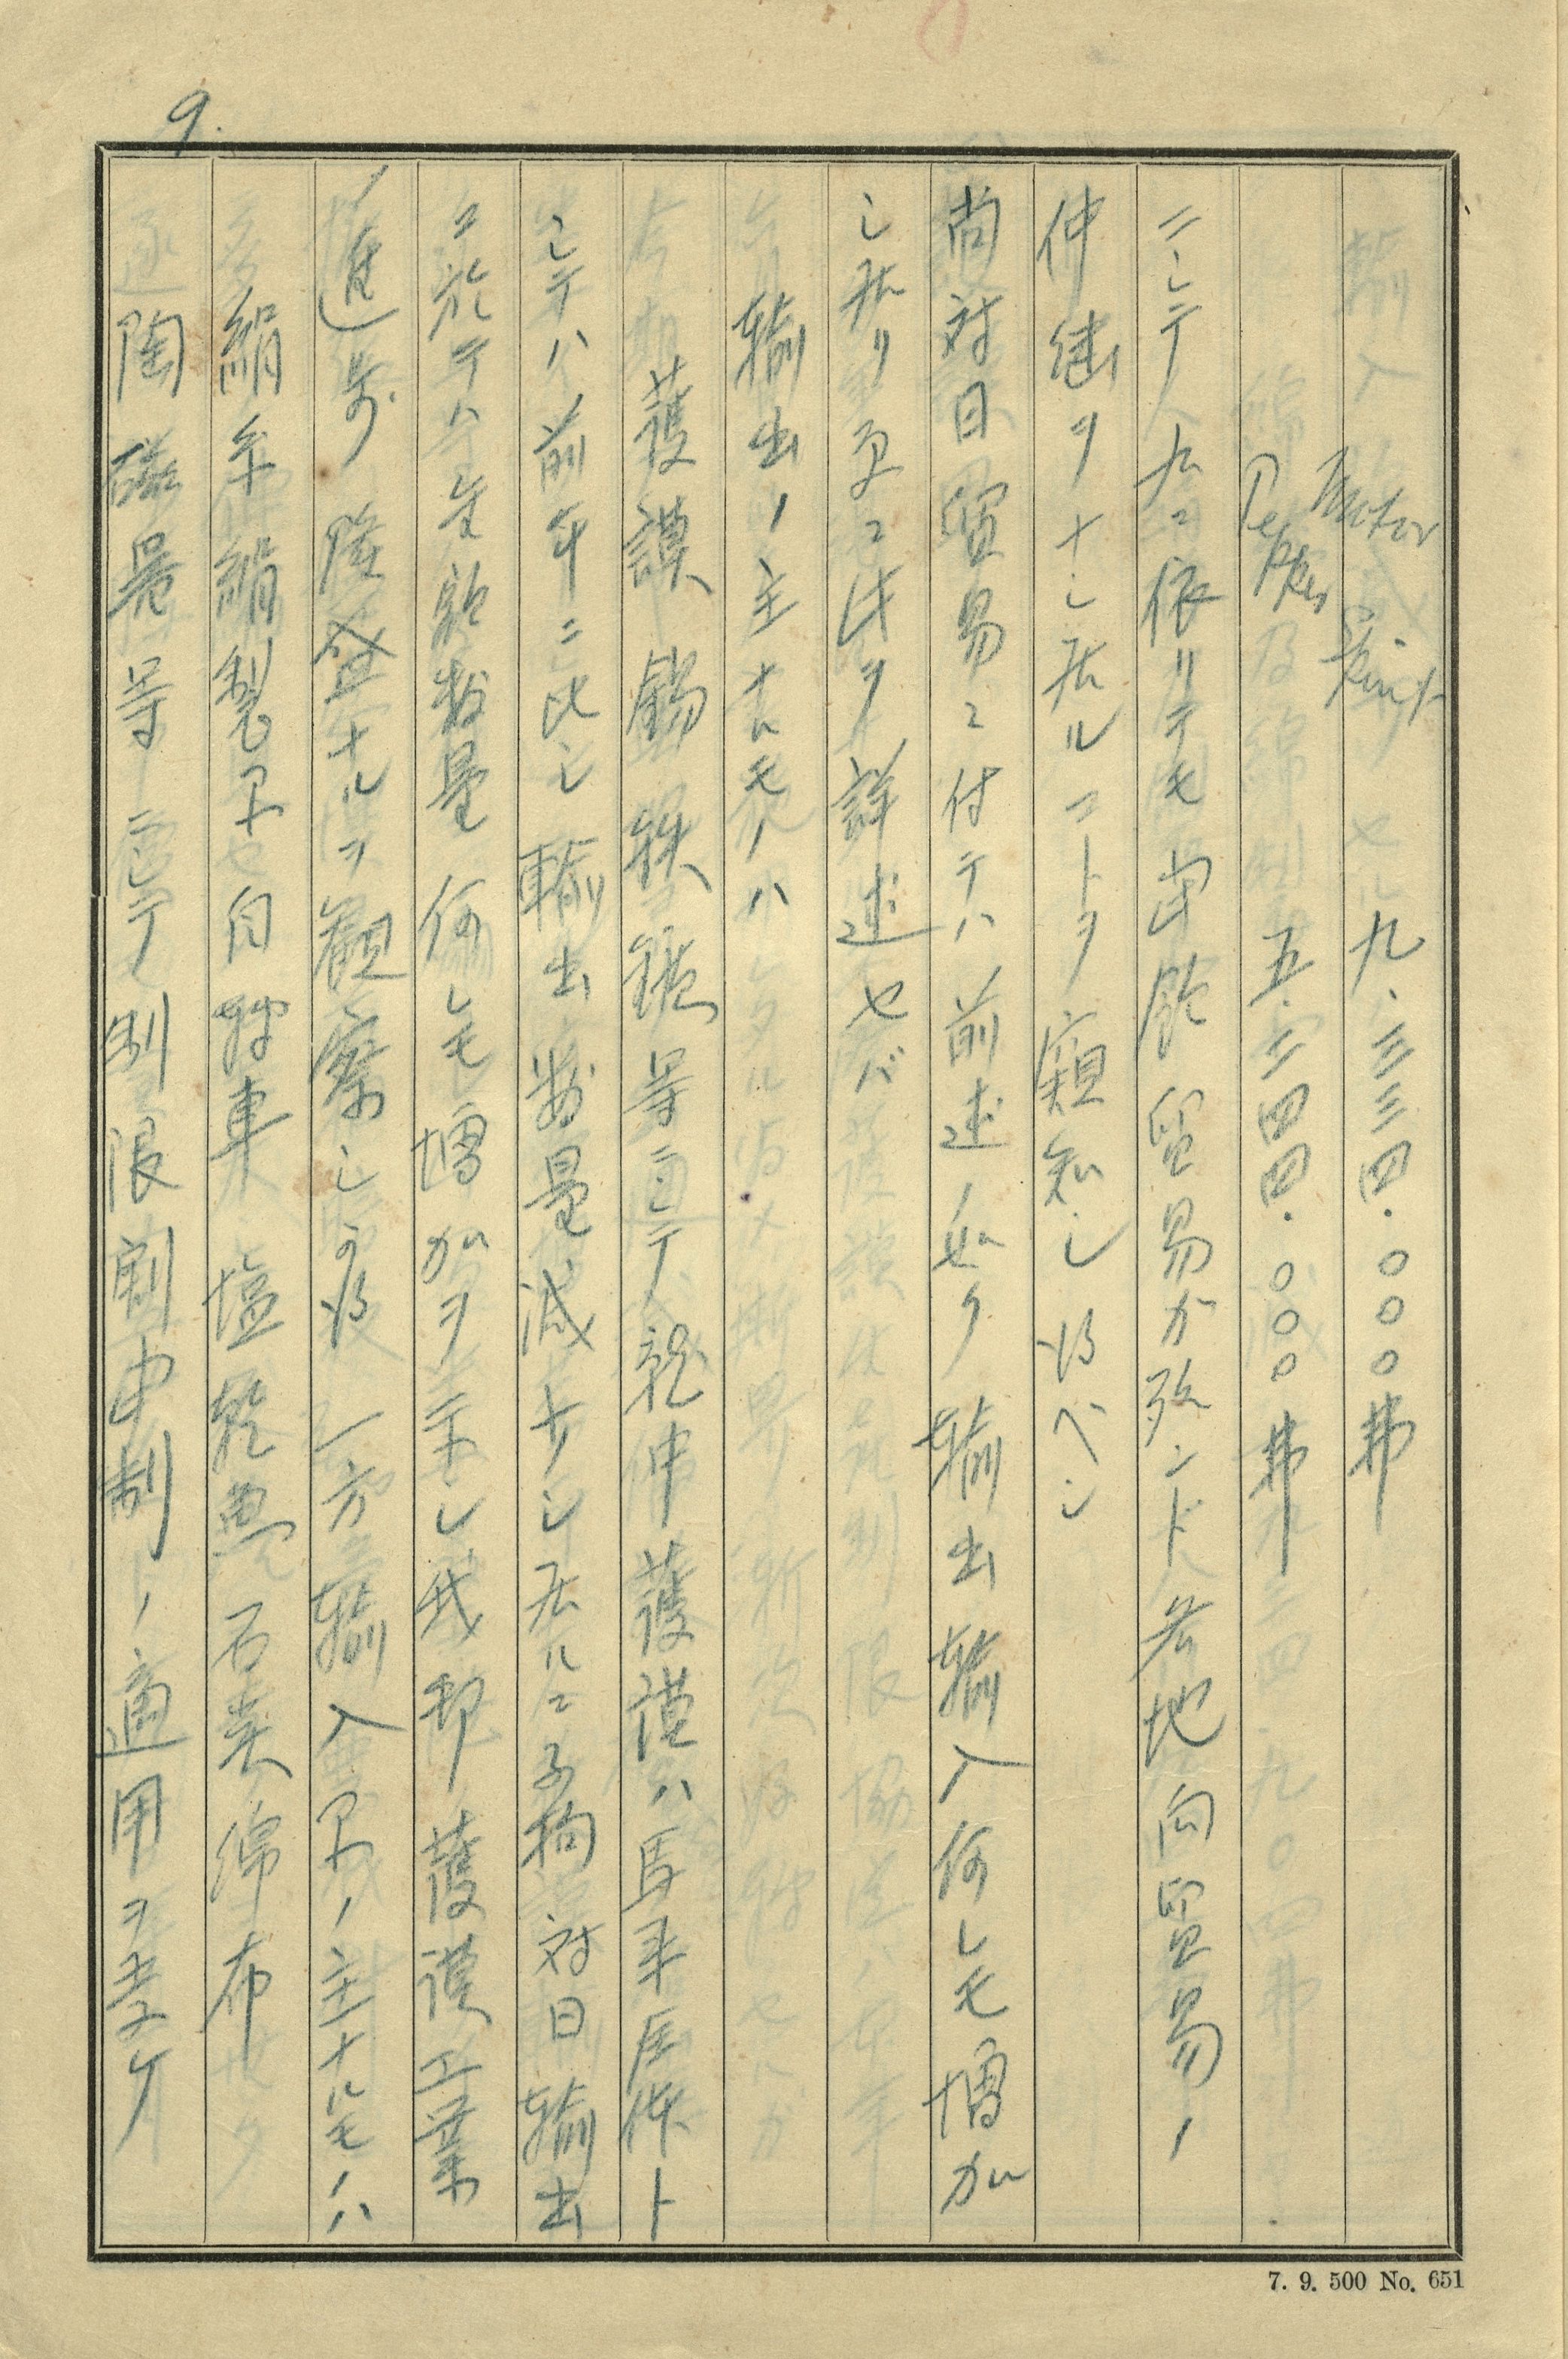 9.
Motor Spirit 九、三三四.〇〇〇弗
Pepper 五.二四四.〇〇〇弗
ニシテ之ニ依リテモ当館貿易ガ殆ンド各地向貿易ノ
仲継ヲナシ居ルコトヲ窺知シ得ベシ
尚対日貿易ニ付テハ前述ノ如ク輸出輸入何レモ増加
シ居リ更ニ此ヲ詳述セバ
輸出ノ主ナルモノハ
護謨 錫 鉄鉱等ニシテ就中護謨ハ馬来全体ト
シテハ前年ニ比シ輸出数量減少シ居ルニ不拘対日輸出
ニ於テハ金額数量何レモ増加ヲ示シ我邦護謨工業
ノ進歩隆盛ナルヲ観察シ可得 一方輸入品ノ主ナルモノハ
絹糸絹製品自転車 塩乾魚 石炭 綿布
陶磁器等ニシテ制限割当制ノ適用ヲ受ケ
7. 9. 500 No. 651